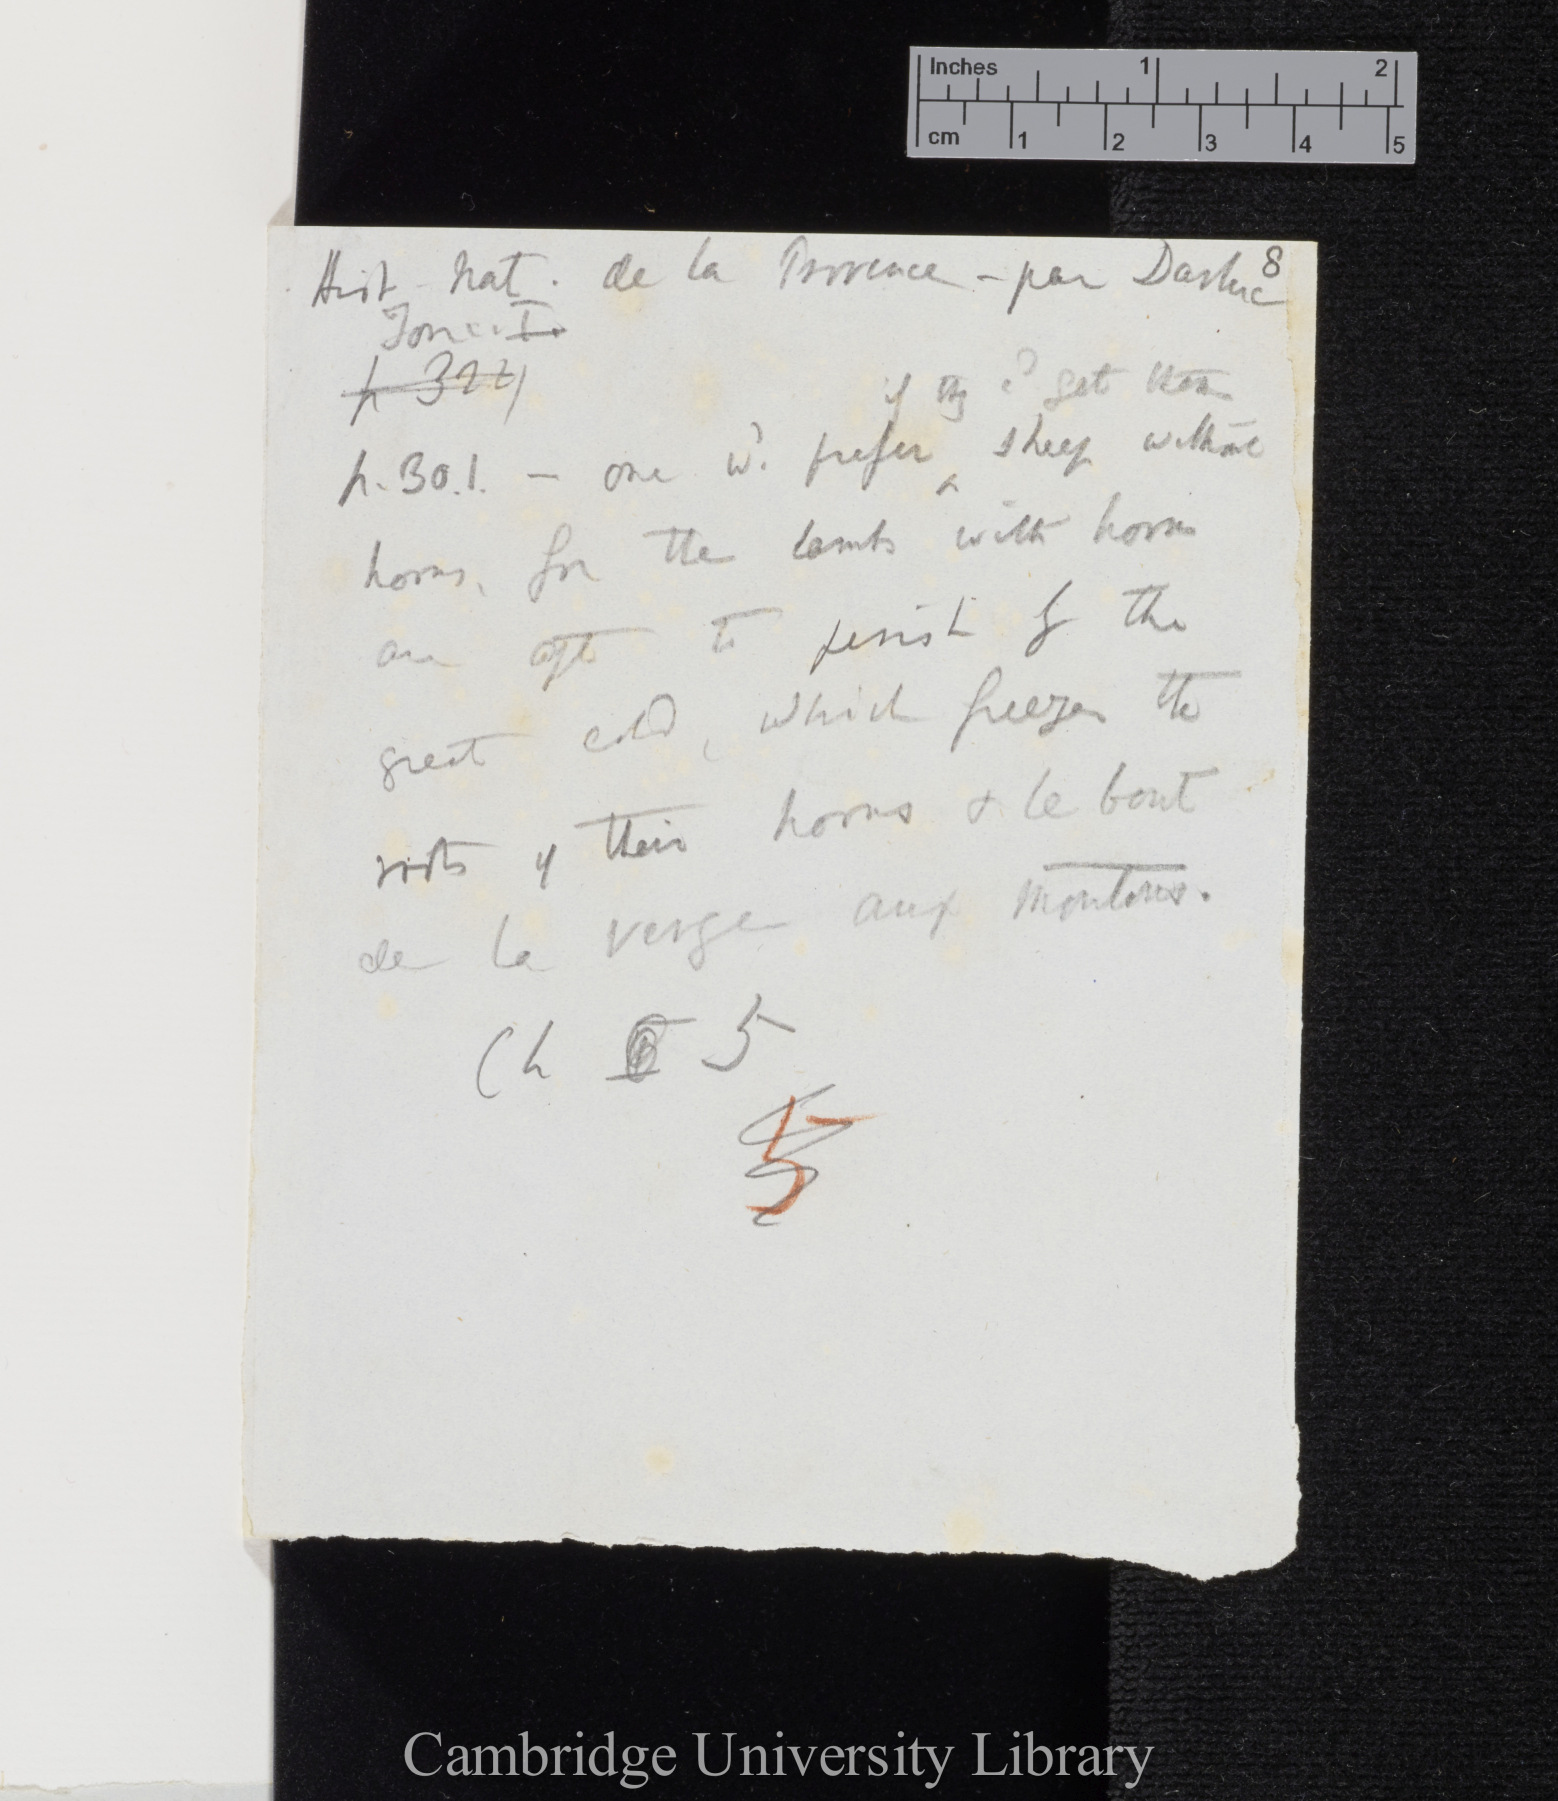 Inches 1 2
cm 1 2 3 4 5
8
Hist. Nat. de la Provence - par Darluc
Tome. I.
p 324
if they cd get them
p. 301. — one wd. prefer ^ sheep without
horns, for the lambs with horns
are apt to perish of the
great cold, which freezes the
roots of their horns & le bout
de la verge aux moutons.
Ch 5
5
Cambridge University Library